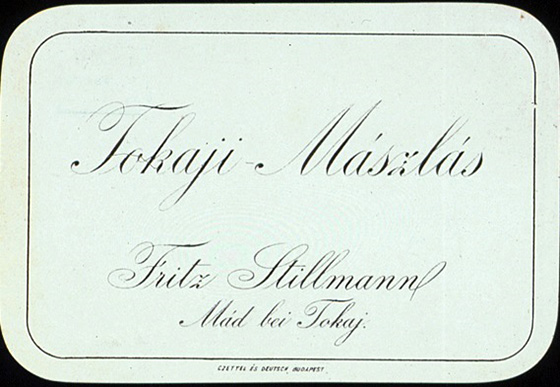 Tokaji-Mászlás
Fritz Stillmann
Mád bei Tokaj.
CZETTEL ÉS DEUTSCH, BUDAPEST.